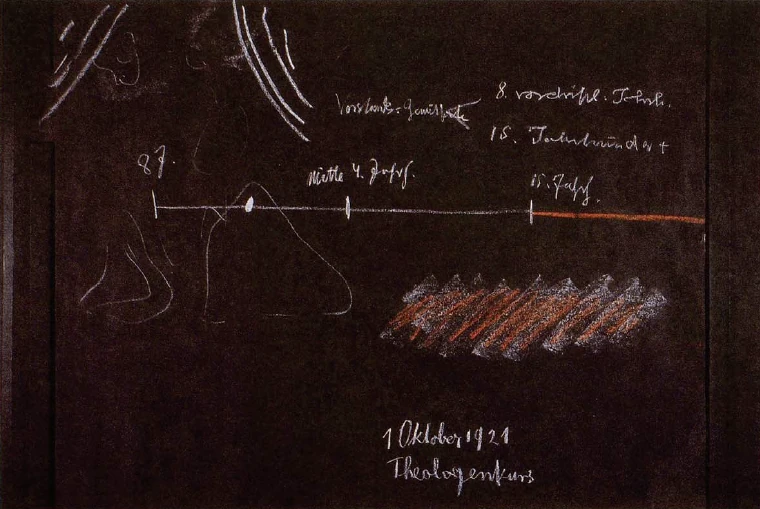 8. vorchristl. Jahrh.
Verstands-Gemütsseele
15. Jahrhundert
8 J.
Mitte 4. Jahrh.
15. Jahrh.
1 Oktober 1921
Theologenkurs